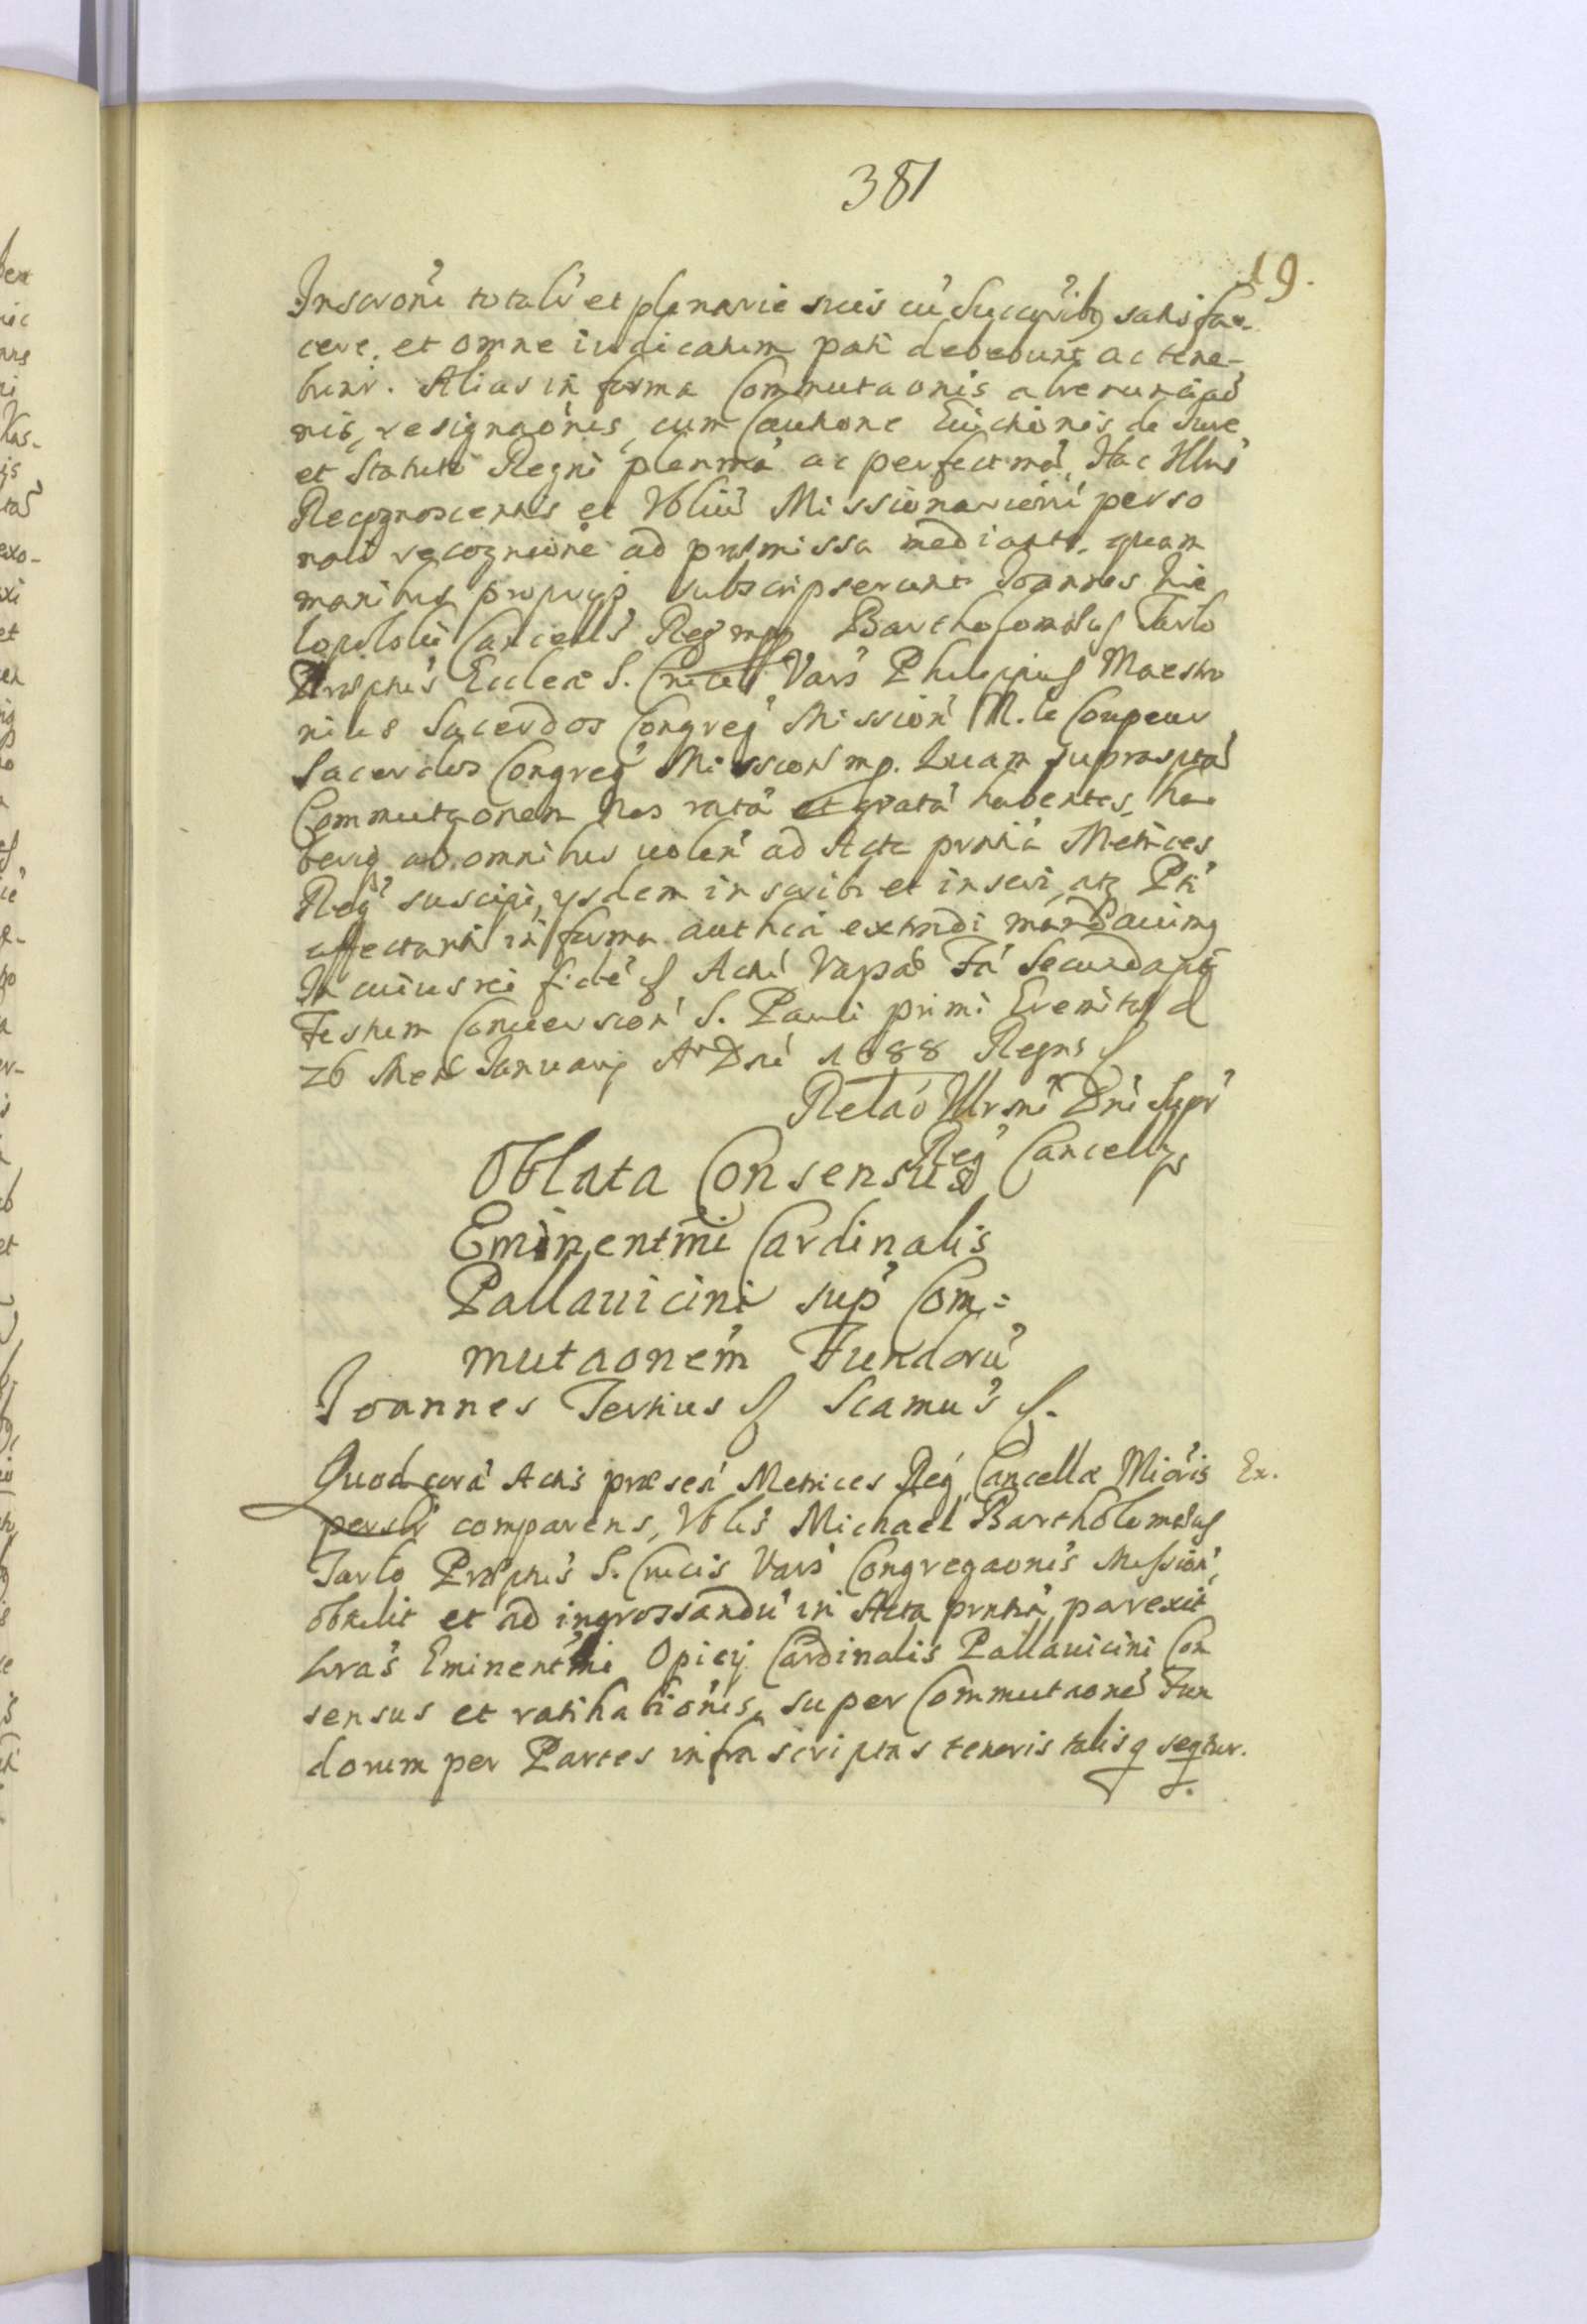 381
19.
Inscrōni totalr et plenarie suis cū Succrib9 satisfa-
cere, et omne iudicatum pati debebunt ac tene-
buntr. Alias in forma Commutaonis abrenunciaō
nis, resignaōnis, cum Cautione Euictionis de Jure
et Statuti Regni plenmā ac perfectmā, Hac Illmi
Recognoscentis et Vbliū Missionarioru perso
nali recognione ad præmissa mediante, quam
manibus proprijs subscripserunt Joannes Wie
lopolski Cancells Regni mpp Bartholomæus Tarlo
Præptus Eccleæ S. Crucis Vars Philippus Maestro
nius Sacerdos Congreg Mission M. le Coupeur
Sacerdos Congreg Mission mp. Quam supraspta
Commutaonem Nos ratā et gratā habentes, ha
beriq ab omnibus uolen ad Acta prntia Metrices
Reg suscipi, ysdem inscribi et inseri, atq Pti
affectanti in forma authca extradi mandauimq
In cuius rei fidē Acti Vapaō Fa Secunda pt
Festum Conuersion S. Pauli primi Eremitæ d
26 Mens Januarij Ao Dni 1688 Regns
Relaō Illrmi Dni Supr
Reg Cancell
Oblata Consensus
Eminentmi Cardinalis
Pallauicini sup Com=
mutaonem Fundorū
Joannes Tertius Scamus
Quod corā Actis præsen Metrices Reg Cancellæ Mioris Ex.
persolr comparens, Vblis Michael Bartholomæus
Tarlo Præptus S. Crucis Vars Congregaonis Mission,
obtulit et ad ingrossandū in Acta prntia porrexit
Lras Eminentmi Opicij Cardinalis Pallauicini Con
sensus et ratihabionis, super Commutaonē Fun
dorum per Partes infrascriptas tenoris talis q seqtur.